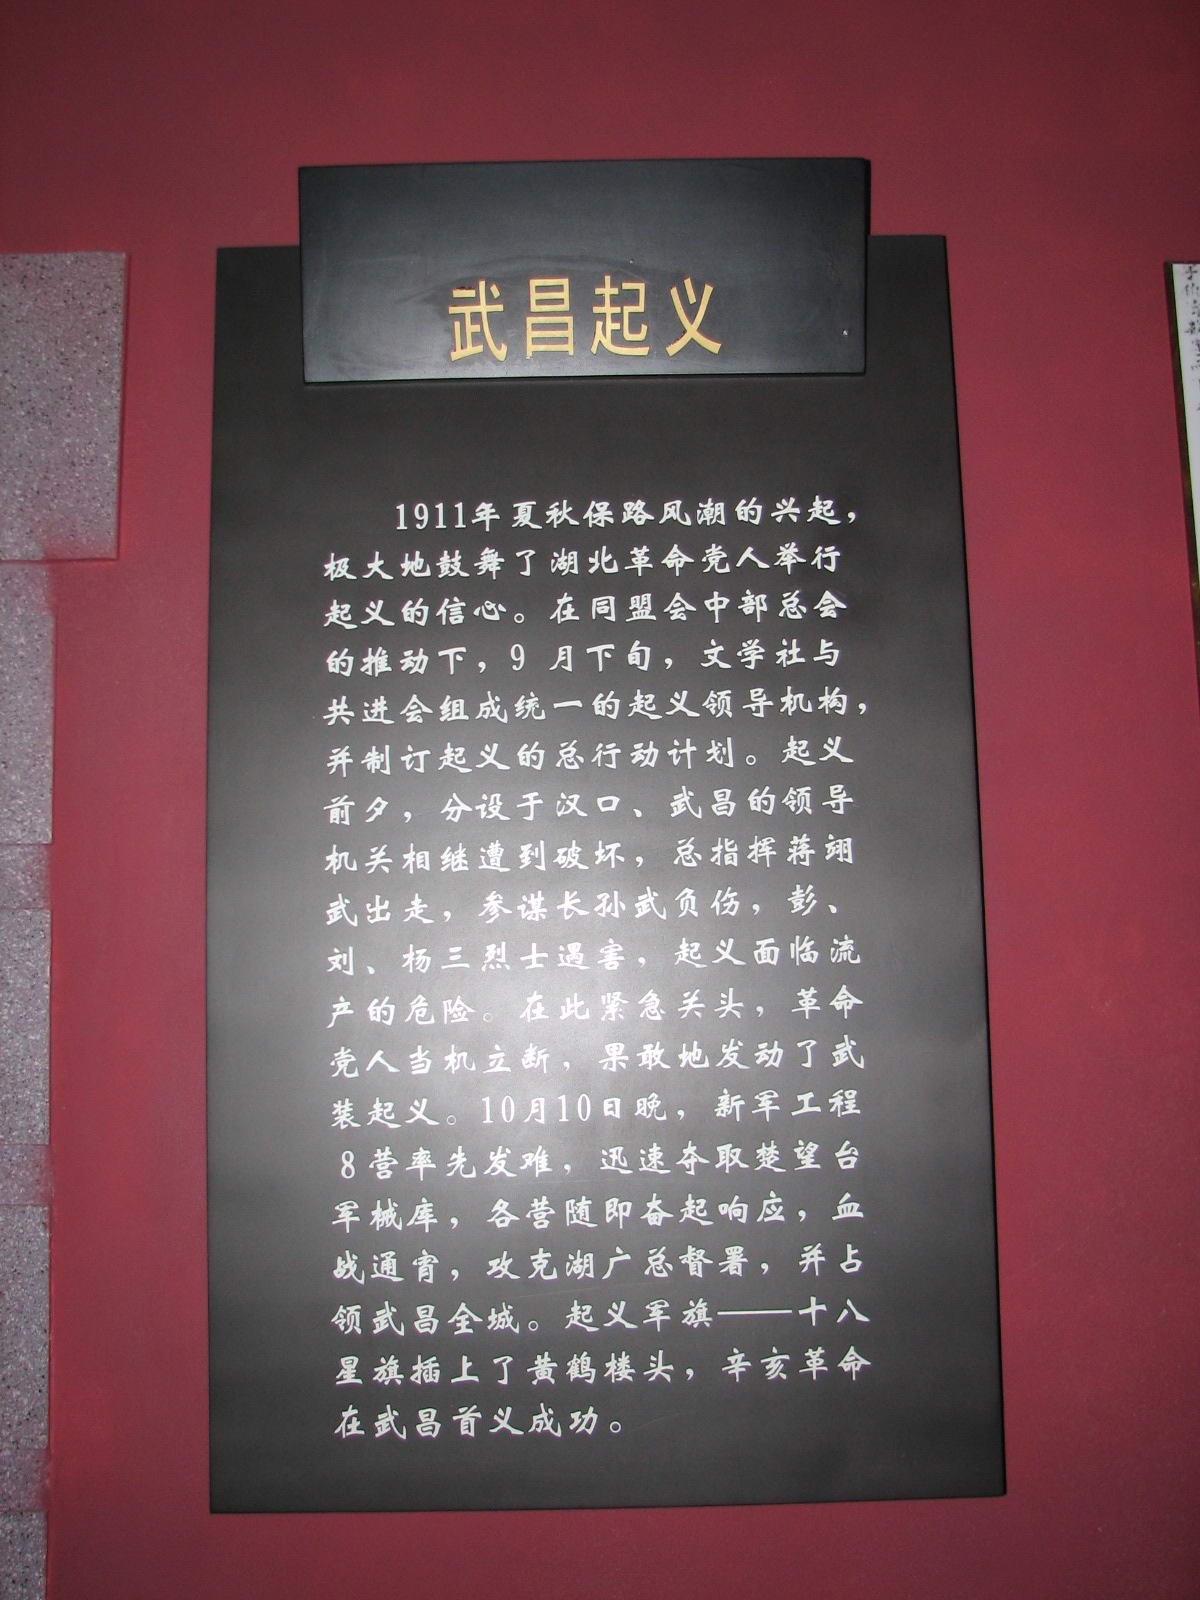 武昌起义
1911年夏秋保路风潮的兴起，
极大地鼓舞了湖北革命党人举行
起义的信心。在同盟会中部总会
的推动下，9 月下旬，文学社与
共进会组成统一的起义领导机构，
并制订起义的总行动计划。起义
前夕，分设于汉口、武昌的领导
机关相继遭到破坏，总指挥蒋翊
武出走，参谋长孙武负伤，彭、
刘、杨三烈士遇害，起义面临流
产的危险。在此紧急关头，革命
党人当机立断，果敢地发动了武
装起义。10月10日晚，新军工程
8营率先发难，迅速夺取楚望台
军械库，各营随即奋起响应，血
战通宵，攻克湖广总督署，并占
领武昌全城。起义军旗——十八
星旗插上了黄鹤楼头，辛亥革命
在武昌首义成功。